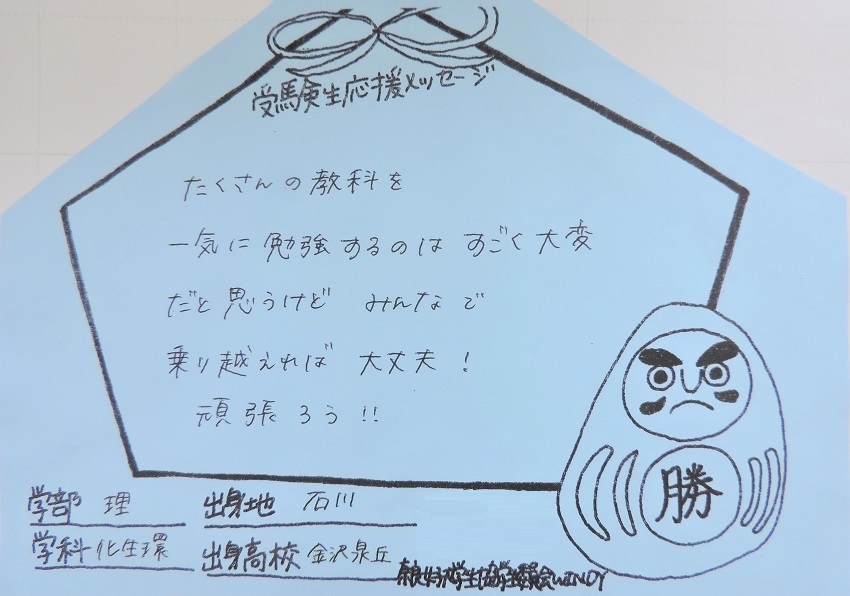 受験生応援メッセージ
たくさんの教科を
一気に勉強するのは すごく大変
だと思うけど みんなで
乗り越えれば 大丈夫!
頑張ろう!!
勝
学部 理 出身地 石川
学科 化生環 出身高校 金沢泉丘
WINDY